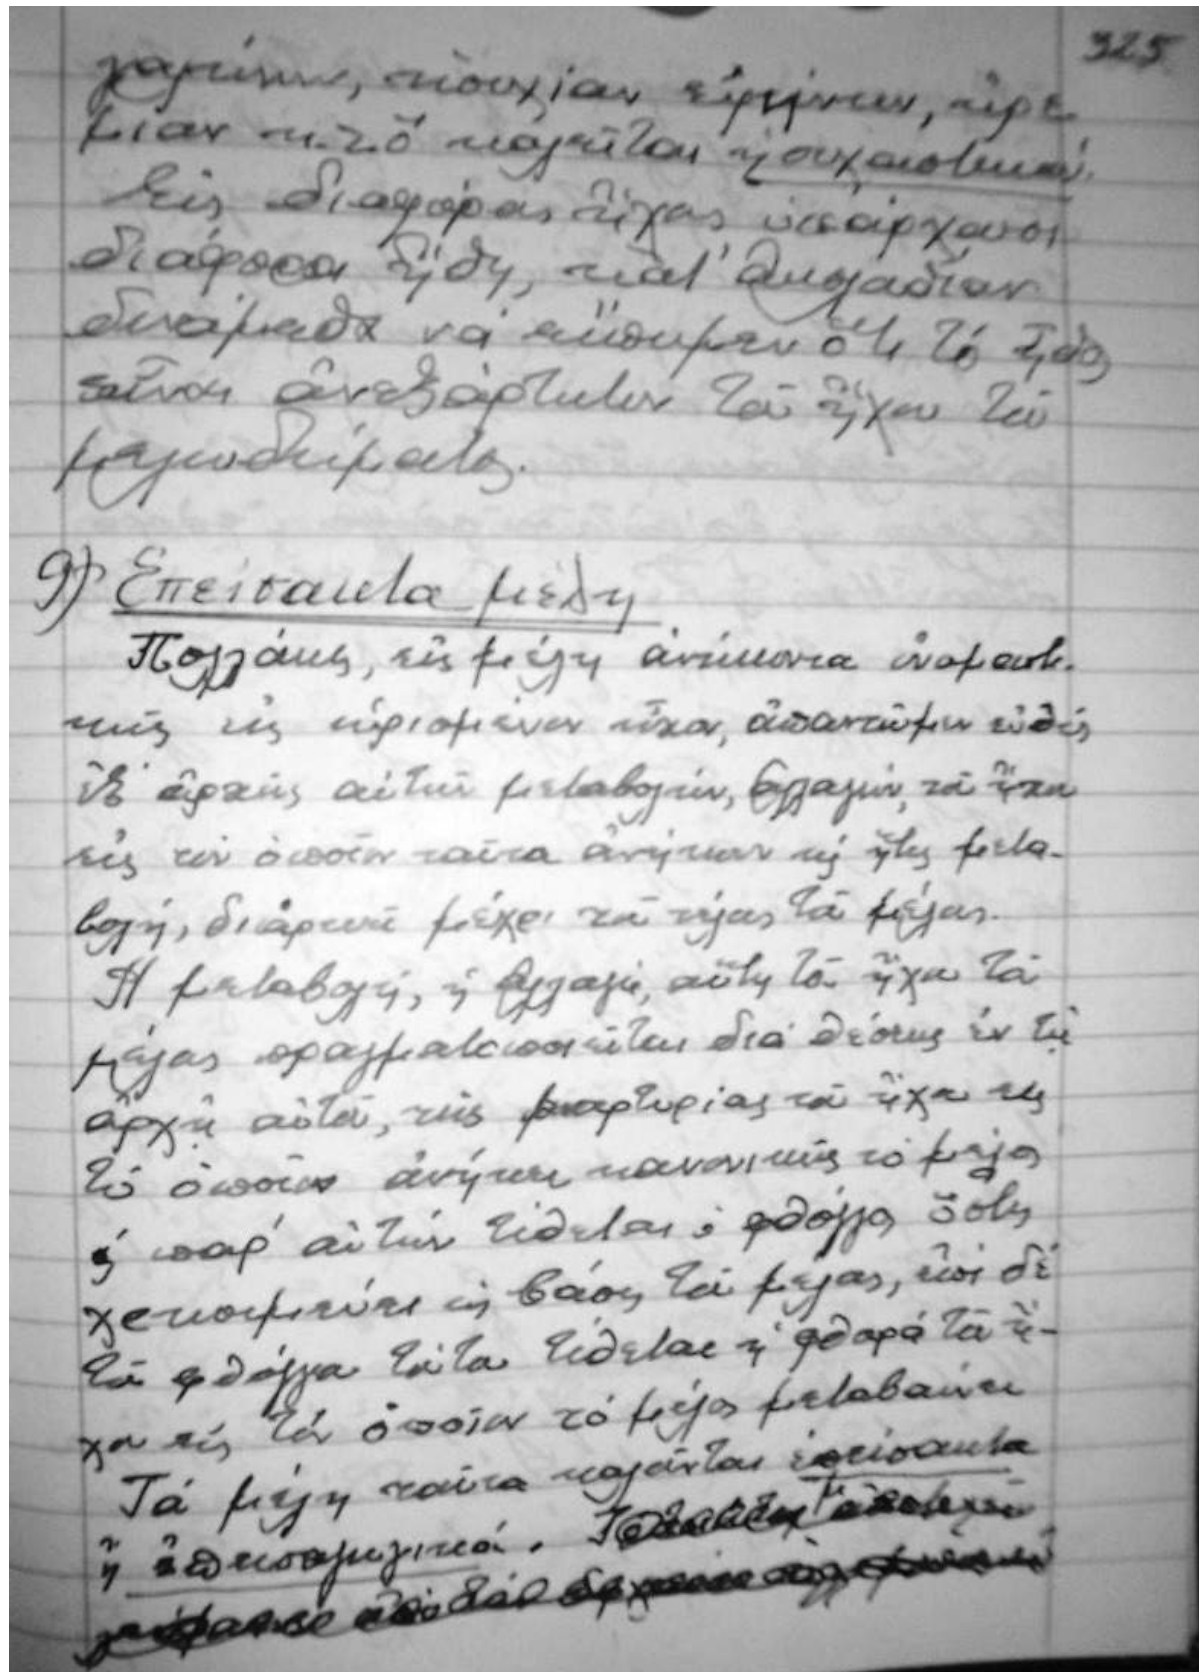 325
γαλήνην, ἡσυχίαν εἰρήνην, ἠρε
μίαν κ.τ.ὅ καλεῖται ἡσυχαστικόν.
Εἰς διαφόρους ἤχους ὑπάρχουσι
διάφορα ἤθη, κατ' ἀκολουθίαν
δυνάμεθα νά εἴπωμεν ὅτι τό ἦθος
εἶναι ἀνεξάρτητον τοῦ ἤχου τοῦ
μελωδήματος.
9) Ἐπείσακτα μέλη
Πολλάκις, εἰς μέλη ἀνήκοντα ὀνομαστι-
κῶς εἰς ὡρισμένον ἦχον, ἀπαντῶμεν εὐθύς
ἐξ ἀρχῆς αὐτῶν μεταβολήν, ἀλλαγήν, τοῦ ἤχου
εἰς τόν ὁποῖον ταῦτα ἀνήκουν καί ἥτις μετα-
βολή, διαρκεῖ μέχρι τοῦ τέλους τοῦ μέλους.
Ἡ μεταβολή, ἡ ἀλλαγή, αὕτη τοῦ ἤχου τοῦ
μέλους πραγματοποιεῖται διά θέσεως ἐν τῇ
ἀρχῇ αὐτοῦ, τῆς μαρτυρίας τοῦ ἤχου εἰς
τό ὁποῖον ἀνήκει κανονικῶς τό μέλος
ἡ παρ' αὐτήν τίθεται ὁ φθόγγος ὅστις
χρησιμεύει ὡς βάσις τοῦ μέλους, ἐπί δέ
τοῦ φθόγγου τούτου τίθεται ἡ φθορά τοῦ ἤ-
χου εἰς τόν ὁποῖον τό μέλος μεταβαίνει
Τά μέλη ταῦτα καλοῦνται ἐπείσακτα
ἤ ἐπεισαγωγικά.